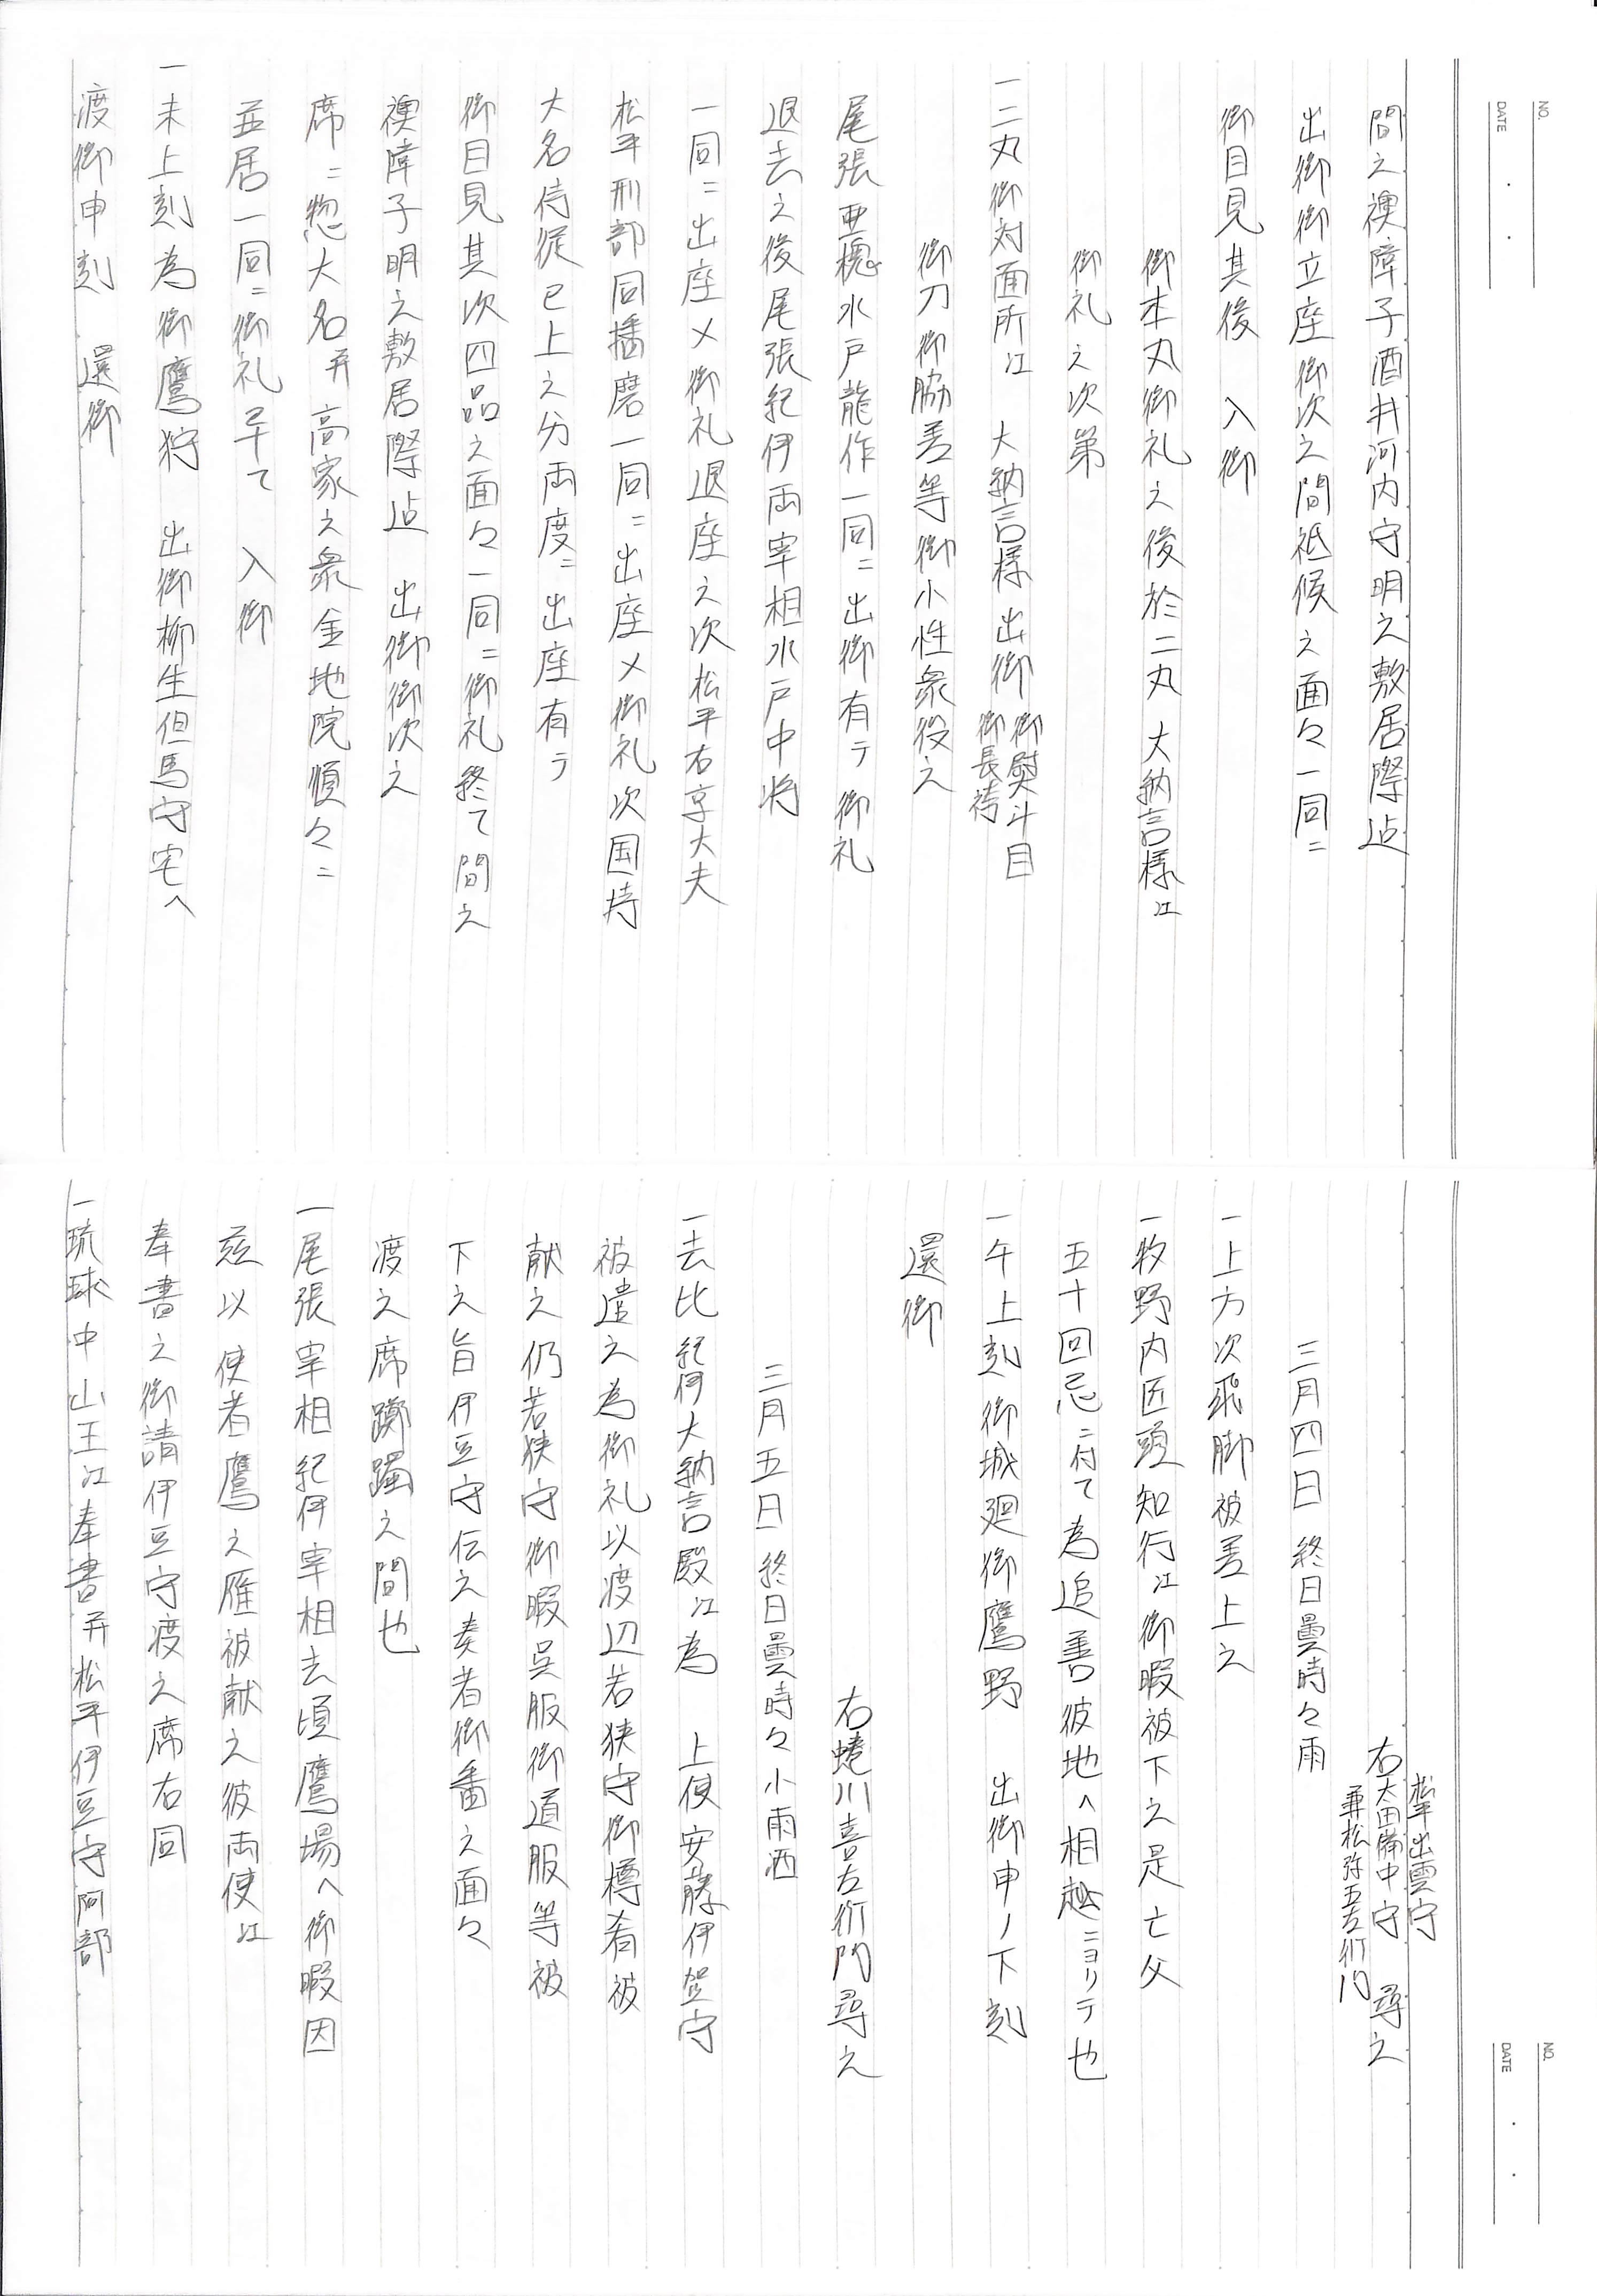 NO.
DATE
間之襖障子酒井河内守明之敷居際迠
出御御立座御次之間祗候之面々一同ニ
御目見其後　入御
御本丸御礼之後於二丸　大納言様江
御礼之次第
一二丸御対面所江　大納言様出御 御熨斗目
御長袴
御刀御脇差等御小性衆役之
尾張亜穏水戸龍作一同ニ出御有テ御礼
退去之後尾張紀伊両宰相水戸中将
一同ニ出座〆御礼退座之次松平右京大夫
松平刑部同播磨一同ニ出座〆御礼次国持
大名侍従已上之分両度ニ出座有テ
御目見其次四品之面々一同ニ御礼終て間之
襖障子明之敷居際迠　出御御次之
席ニ惣大名并高家之衆金地院順々ニ
並居一同ニ御礼畢て　入御
一未上刻為御鷹狩　出御柳生但馬守宅へ
渡御申刻　還御
NO.
DATE
松平出雲守
右太田備中守　尋之
兼松弥五左衛門
三月四日　終日曇時々雨
一上方次飛脚被差上之
一牧野内匠頭知行江御暇被下之是亡父
五十回忌ニ付て為追善彼地へ相越ニヨリテ也
一午上刻御城廻御鷹野　出御申ノ下刻
還御
右蜷川喜左衛門尋之
三月五日　終日曇時々小雨洒
一去比紀伊大納言殿江為　上使安藤伊賀守
被遣之為御礼以渡辺若狭守御樽肴被
献之仍若狭守御暇呉服御道服等被
下之旨伊豆守伝之奏者御番之面々
渡之席躑躅之間也
一尾張宰相紀伊宰相去頃鷹場へ御暇因
茲以使者鷹之雁被献之彼両使江
奉書之御請伊豆守渡之席右同
一琉球中山王江奉書并松平伊豆守阿部